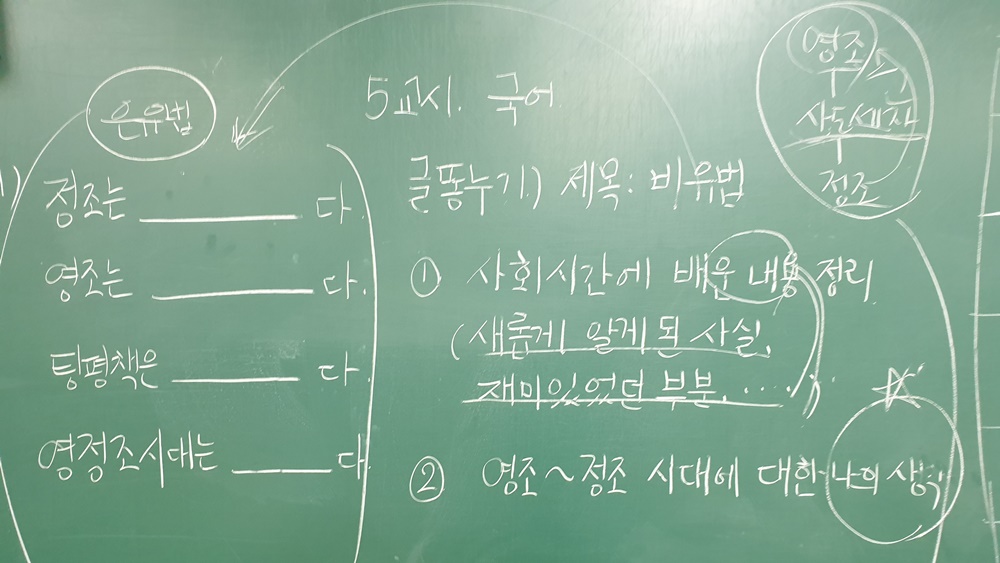 5교시. 국어.
글똥누기) 제목: 비유법
① 사회시간에 배운 내용 정리
(새롭게 알게 된 사실,
재미있었던 부분.....)
② 영조~정조 시대에 대한 나의 생각
은유법
1)
정조는 ________ 다.
영조는 ________ 다.
탕평책은 ________ 다.
영정조시대는 ________ 다.
영조
사도세자
정조